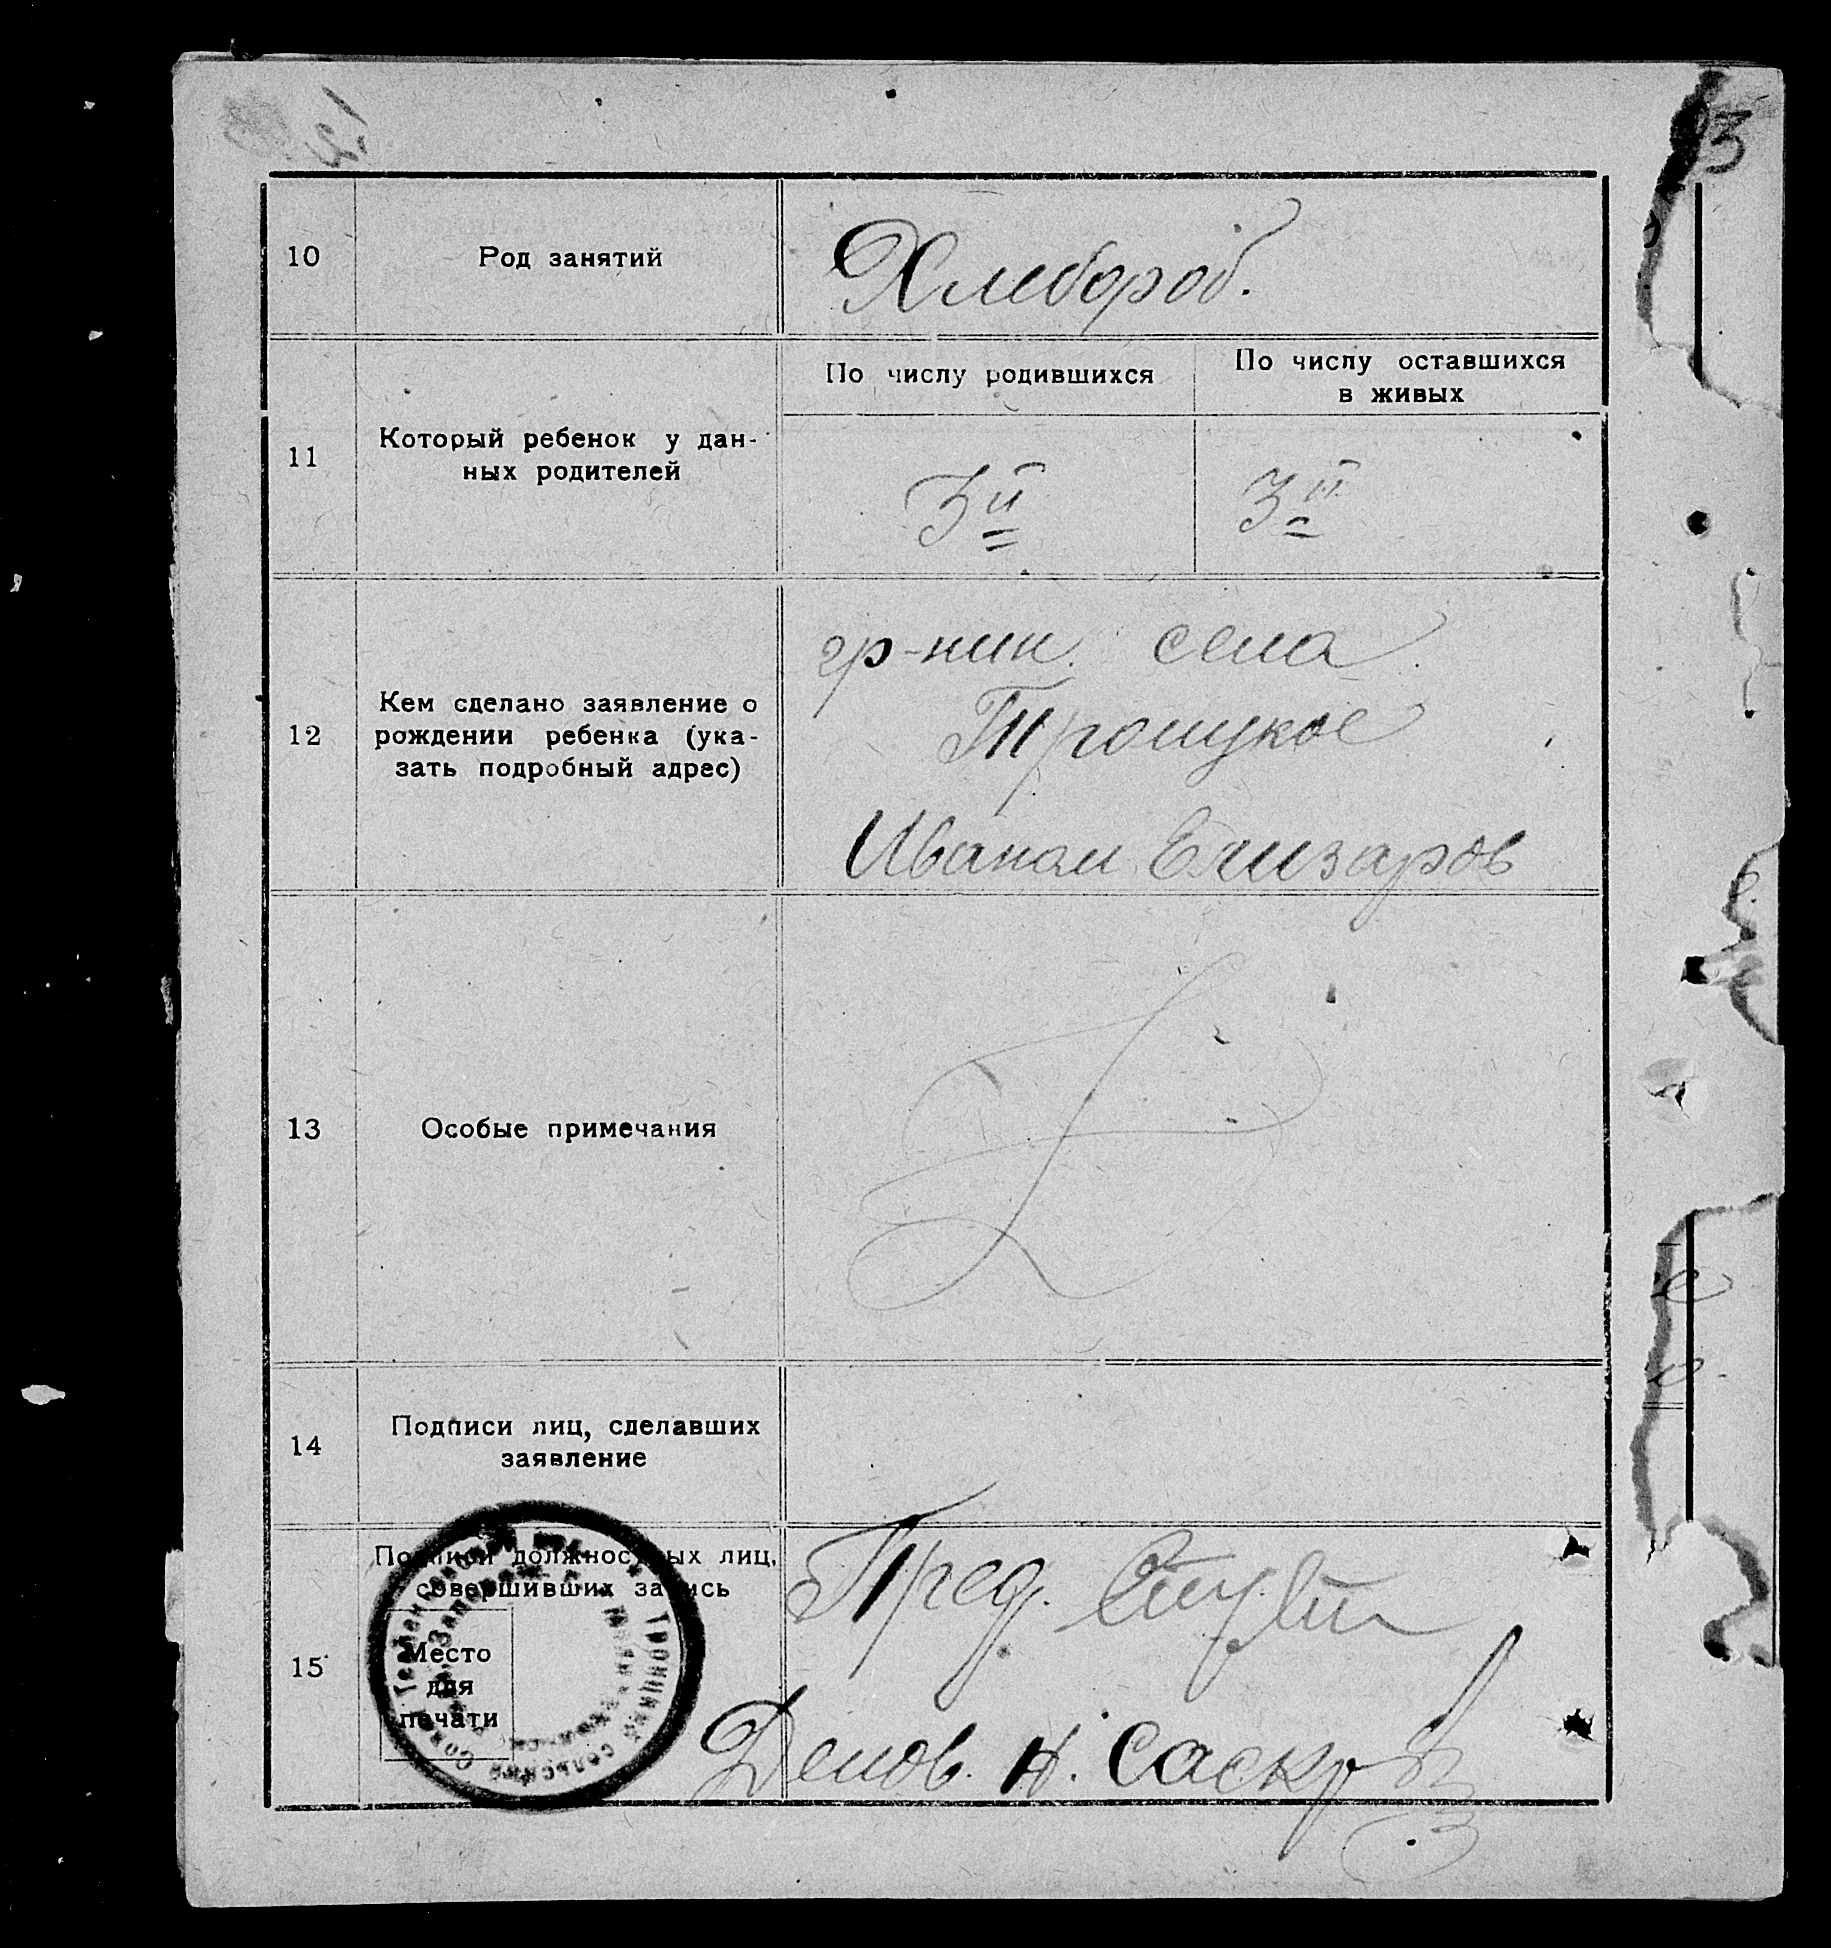 3
10 Род занятий Хлебороб.
По числу родившихся
По числу оставшихся
в живых
11 Который ребенок у дан-
ных родителей
3й 3й
12 Кем сделано заявление о
рождении ребенка (ука-
зать подробный адрес)
гр-нин. села
Троицкое
Иваном Елизаров
13 Особые примечания
14 Подписи лиц, сделавших
заявление
15 Подписи должностных лиц,
совершивших запись
Место
для
печати
Троицкий сельский Сов
Пред.
Делов. Н.